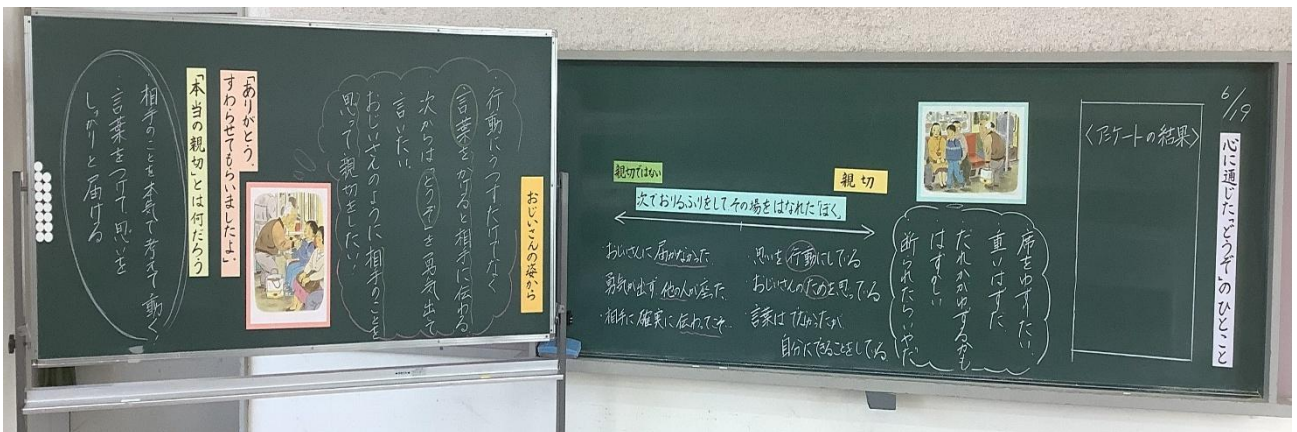 6/19
心に通じた「どうぞ」のひとこと
〈アンケートの結果〉
席をゆずりたい。
重いはずだ
だれかがゆずるかも
はずかしい
断られたらいやだ
親切
親切ではない
次でおりるふりをして、その場をはなれた「ぼく」
・思いを行動にしている
おじいさんのためを思っている
言葉はでなかったが
自分にできることをしている
おじいさんに届かなかった
勇気が出ず、他の人が座った
・相手に確実に伝わってこそ
おじいさんの姿から
・行動にうつすだけでなく
言葉をかけると相手に伝わる
次からは「どうぞ」を勇気出して
言いたい。
おじいさんのように相手のことを
思って親切をしたい!
「ありがとう。
すわらせてもらいましたよ」
「本当の親切」とは何だろう
・相手のことを本気で考えて動く。
・言葉をつけて思いを
しっかりと届ける